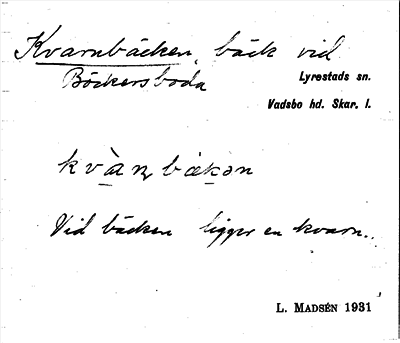 Kvarnbäcken, bäck vid
Böckersboda
Lyrestads sn.
Vadsbo hd. Skar. l.
kvàn bækən
Vid bäcken ligger en kvarn.
L. MADSÉN 1931